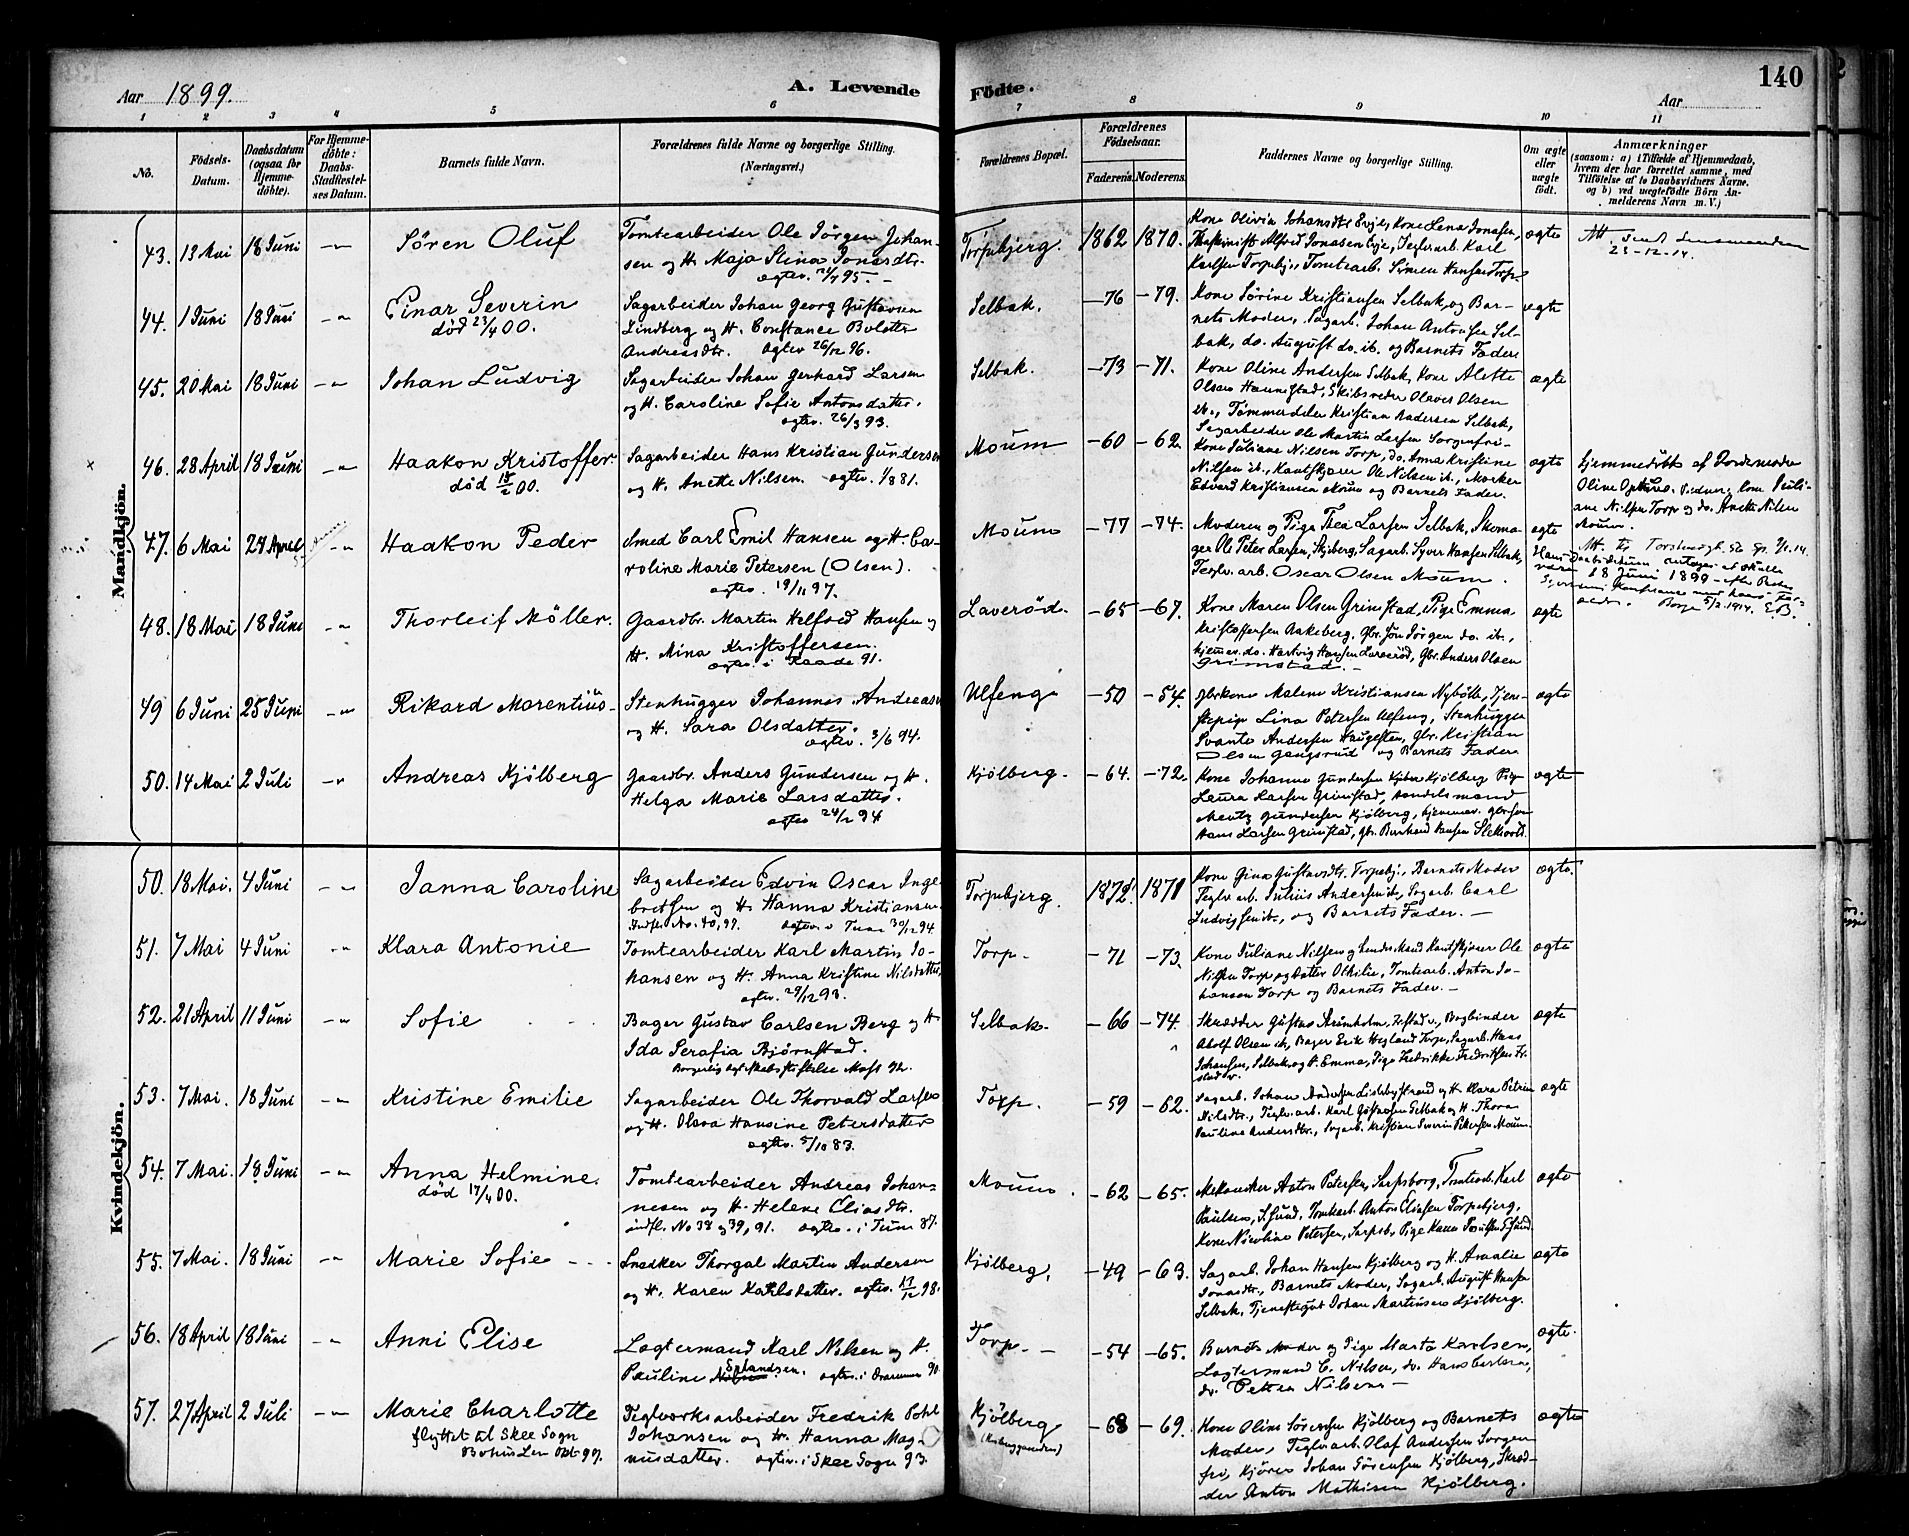 Aar 1899.
A. Levende
Födte.
140
Aar
1 2 3 4 5 6 7 8 9 10 11
No.
Födsels-Datum.
Daabsdatum (ogsaa for Hjemmedöbte).
For Hjemmedöbte: Daabs-Stadfæstelses Datum.
Barnets fulde Navn.
Forældrenes fulde Navne og borgerlige Stilling. (Næringsvei.)
Forældrenes Bopæl.
Forældrenes Födselsaar.
Faderens. Moderens.
Faddernes Navne og borgerlige Stilling.
Om ægte eller uægte födt.
Anmærkninger
(saasom: a) i Tilfælde af Hjemmedaab, hvem der har forrettet samme, med Tilföielse af to Daabsvidners Navne. og b) ved uegtefödte Börn Anmelderens Navn m. V.)
Mandkjön.
43. 13 Mai 18 Juni Sören Oluf
Tomtearbeider Ole Jörgen Johan-
sen og H. Maja Stina Jonasdtr.
Torpebjerg. 1862 1870.
Kone Olivia Johansdtr Evje, Kone Lena Jonasen,
Maskinist Alfred Jonasen Evje, Teglv.arb. Karl
Karlsen Torpebj., Tomtearb. Simen Hansen Torp
ægte
23-12-14.
44. 1 Juni 18 Juni Einar Severin
död 23/4 00.
Sagarbeider Johan Georg Gustavsen
Lindberg og H. Constance Bolette
Andreasdtr. ægtev 26/12 96.
Selbak. -76 -79.
Kone Sörine Kristiansen Selbak, og Bar-
nets Moder, Sagarb. Johan Antonsen Sel-
bak, do. August do. ib. og Barnets Fader
ægte
45. 20 Mai 18 Juni Johan Ludvig
Sagarbeider Johan Gerhard Larsen
og H. Caroline Sofie Antonsdatter.
ægtev. 26/3 93.
Selbak. -73 -71.
Kone Oline Andersen Selbak, Kone Alette
Olsen Hannestad, Skibsreder Olaves Olsen
ib., Tömmerdeler Kristian Andersen Selbak,
Sagarbeider Ole Martin Larsen Sorgenfri-
ægte
46. 28 April 18 Juni Haakon Kristoffer.
död 15/2 00.
Sagarbeider Hans Kristian Gundersen
og H. Anette Nilsen. ægtev. 1/8 81.
Moum -60 -62.
Kone Juliane Nilsen Torp, do. Anna Kristine
Nilsen ib., Kautskjører Ole Nilsen ib.,
Edvard Kristiansen Moum og Barnets Fader.
ægte
Hjemmedöbt af Jordemoder
Oline
ane Nilsen Torp og do. Anette Nilsen
Moum.
47. 6 Mai 24 April Haakon Peder
Smed Carl Emil Hansen og H. Ca-
roline Marie Petersen (Olsen).
ægtev. 19/11 97.
Moum -77 -74.
Moderen og Pige Thea Larsen Selbak, Skoma-
ger Ole Peter Larsen, Skjeberg, Sagarb. Syver Hansen Selbak,
Teglv. arb. Oscar Olsen Moum.
ægte
18 Juni 1899
Borge 5/2 1914. E.B.
48. 18 Mai 18 Juni Thorleif Möller.
Gaardbr. Martin Helfred Hansen og
H. Mina Kristoffersen.
ægtev. i Raade 91.
Laveröd. -65 -67.
Kone Maren Olsen Grimstad, Pige Emma
Kristoffersen Rakeberg, Gbr. Jön Jörgen do. ib.,
hjemmev. do. Hartvig Hansen Laveröd, Gbr. Anders Olsen
Grimstad.
ægte
49 6 Juni 25 Juni Rikard Marentius
Stenhugger Johannes Andreasen
og H. Sara Olsdatter.
ægtev. 3/6 94.
Ulfeng -50 -54.
Gbrkone Malene Kristiansen Nybölle, Tjene-
stepige Lina Petersen Ulfeng, Stenhugger
Svante Andersen Haugesten, Gbr. Kristian
Olsen Gangsrud og Barnets Fader
ægte
50. 14 Mai 2 Juli Andreas Kjölberg
Gaardbr. Anders Gundersen og H.
Helga Marie Larsdatter.
Kjölberg. -64. -72.
Kone Johanne Gundersen Kjölberg Pige
Laura Larsen Grimstad, Handelsmand
Mentz Gundersen Kjölberg, hjemmev. gbrsön
Hans Larsen Grimstad, gbr. Bernhard Hansen
ægte
Kvindekjön.
50. 18 Mai. 4 Juni Janna Caroline
Sagarbeider Edvin Oscar Inge-
bretsen og H. Hanna Kristiansen.
Indfl. No. 40, 97. ægtev. i Tune 30/12 94.
Torpebjerg. 1872. 1871
Kone Gina Gustavsdtr. Torpebj., Barnets Moder
Teglv arb. Julius Andersen ib., Sagarb. Carl
Ludvigsen ib., og Barnets Fader.
ægte.
51. 7 Mai 4 Juni Klara Antonie
Tomtearbeider Karl Martin Jo-
hansen og H. Anna Kristine Nilsdatter,
ægtev. 29/12 93.
Torp. -71 -73.
Kone Juliane Nilsen og hendes Mand Kautskjører Ole
Nilsen Torp og datter Othilie, Tomtearb. Anton Jo-
hansen Torp og Barnets Fader.
ægte
52. 21 April 11 Juni Sofie
Bager Gustav Carlsen Berg og H
Ida Serafia Bjørnstad.
Borgerlig Ægteskabsstiftelse Moss 92.
Selbak. -66 -74.
Skrædder Gustav Strömholm, Frstad, Bogbinder
Adolf Olsen ib., Bager Erik Hegland Torp, Sagarb. Hans
Johansen, Selbak, og H. Emma, Pige Fredrikke Fredriksen Fr.
stad.
ægte
53. 7 Mai. 18 Juni Kristine Emilie
Sagarbeider Ole Thorvald Larsen
og H. Olava Hansine Petersdatter
ægtev. 5/10 83.
Torp. -59 -62.
Sagarb. Johan Andersen Lisleby Strand og H. Klara Petrine
Nilsdtr., Teglv.arb. Karl Gustavsen Selbak og H. Thora
Pauline Andersdtr., Sagarb. Kristian Severin Petersen Moum.
ægte
54. 7 Mai. 18 Juni Anna Helmine.
död 17/4 00.
Tomtearbeider Andreas Johan-
nesen og H. Helene Eliasdtr.
indfl. No 38 og 39, 91. ægtev. i Tune 87.
Moum. -62 -65.
Mekaniker Anton Petersen, Sarpsborg, Tomtearb. Karl
Paulsen, S.sund, Tomtearb. Anton Eliasen Torpebjerg,
Kone Nicoline Petersen, Sarpsb., Pige Hanna Paulsen S.sund.
ægte
55. 7 Mai. 18 Juni Marie Sofie
Snedker Thorgal Martin Andersen
og H. Karen Karlsdatter. ægtev. 17/12 98.
Kjölberg. -49 -63.
Sagarb. Johan Hansen Kjölberg og H. Amalie
Jonasdtr., Barnets Moder, Sagarb. August Hansen
Selbak, Tjenestegut Johan Martinsen Kjölberg.
ægte
56. 18 April 18 Juni Anni Elise
Lægtermand Karl Nilsen og H.
Pauline Nilsen Erlandsen. ægtev. i Drammen 90.
Torp. -54 -65.
Barnets Moder og Pige Marta Karlsen,
Lægtermand C. Nilsen, do. Hans Carlsen,
do. Petter Nilsen
ægte.
57. 27 April 2 Juli Marie Charlotte
flyttet til Skee Sogn
Bohus Len Okt 99.
Teglværksarbeider Fredrik Pohl
Johansen og H. Hanna Mag-
nusdatter. ægtev. i Skee Sogn 93.
Kjölberg -68 -69.
Kone Oline Sörensen Kjölberg og Barnets
Moder, Teglv.arb. Olaf Andersen Sorgen
fri, Kjörer Johan Sörensen Kjölberg, Skræd-
der Anton Mathisen Kjölberg.
ægte